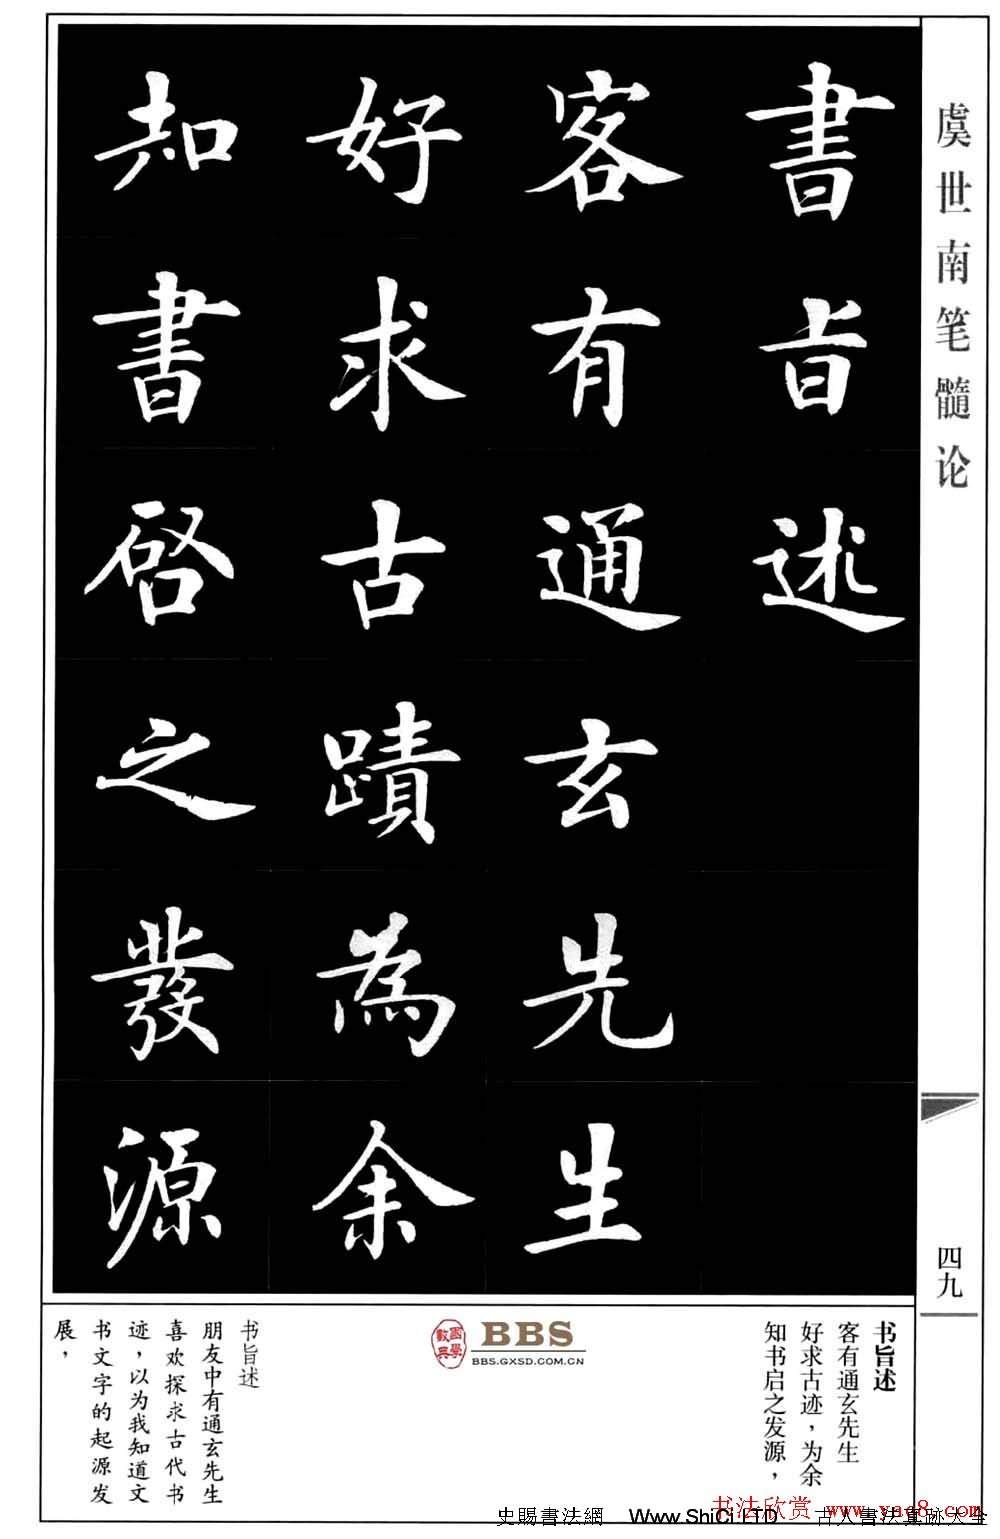 虞世南笔髓论
四九
書旨述
客有通玄先生
好求古蹟為余
知書啓之發源
书旨述
客有通玄先生
好求古迹，为余
知书启之发源，
BBS
BBS.GXSD.COM.CN
书旨述
朋友中有通玄先生
喜欢探求古代书
迹，以为我知道文
书文字的起源发
展，
书法欣赏 www.yac8.com
史賜書法網 Www.ShiCi.LTD 古人書法真跡大全